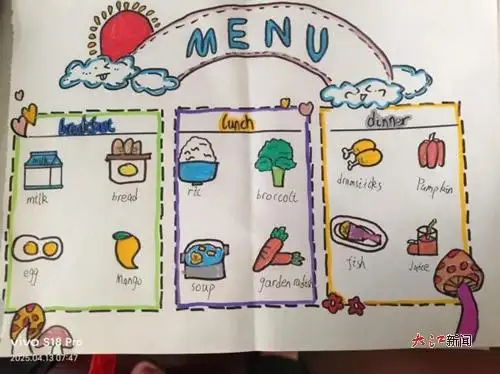 MENU
breakfast
lunch
dinner
milk
milk
bread
ric
broccoli
drumsticks
Pumpkin
egg
Mango
soup
garden radish
fish
Juice
vivo S18 Pro
2025.04.13 07:47
大江新闻